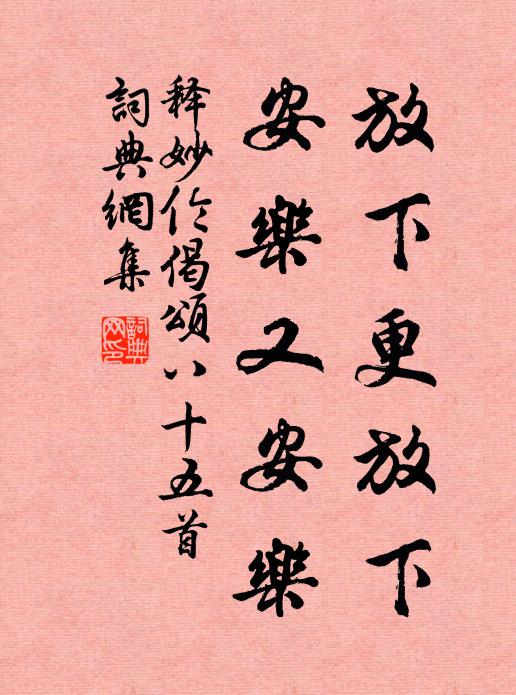 放下更放下
安樂又安樂
释妙伦偈頌八十五首
詞典網集
詞典網印